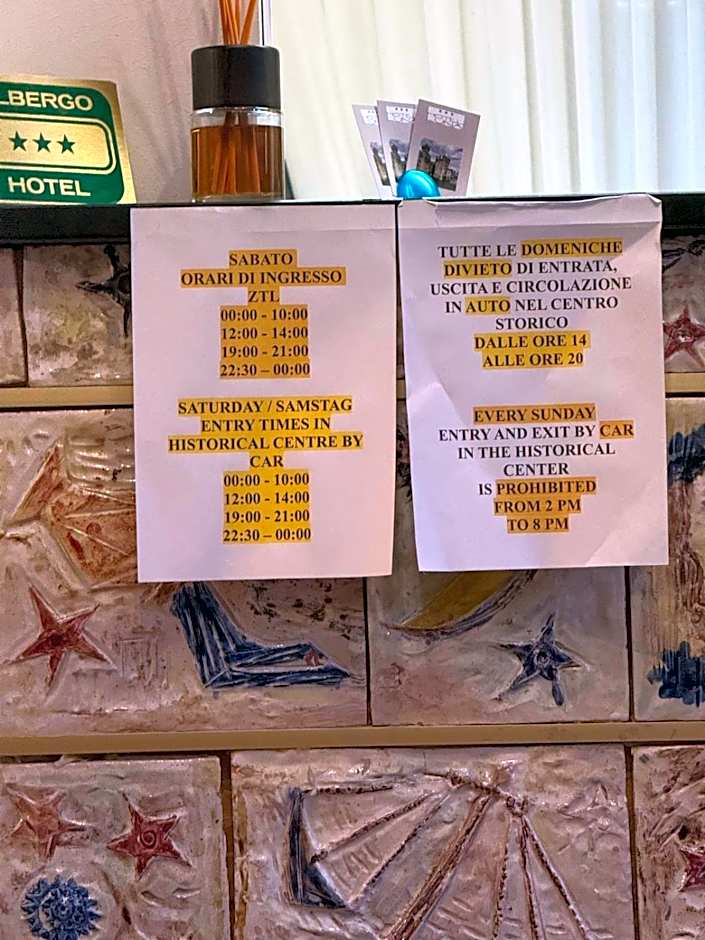 LBERGO
HOTEL
SABATO
ORARI DI INGRESSO
ZTL
00:00 - 10:00
12:00 - 14:00
19:00 - 21:00
22:30 – 00:00
SATURDAY / SAMSTAG
ENTRY TIMES IN
HISTORICAL CENTRE BY
CAR
00:00 - 10:00
12:00 - 14:00
19:00 - 21:00
22:30 – 00:00
TUTTE LE DOMENICHE
DIVIETO DI ENTRATA,
USCITA E CIRCOLAZIONE
IN AUTO NEL CENTRO
STORICO
DALLE ORE 14
ALLE ORE 20
EVERY SUNDAY
ENTRY AND EXIT BY CAR
IN THE HISTORICAL
CENTER
IS PROHIBITED
FROM 2 PM
TO 8 PM